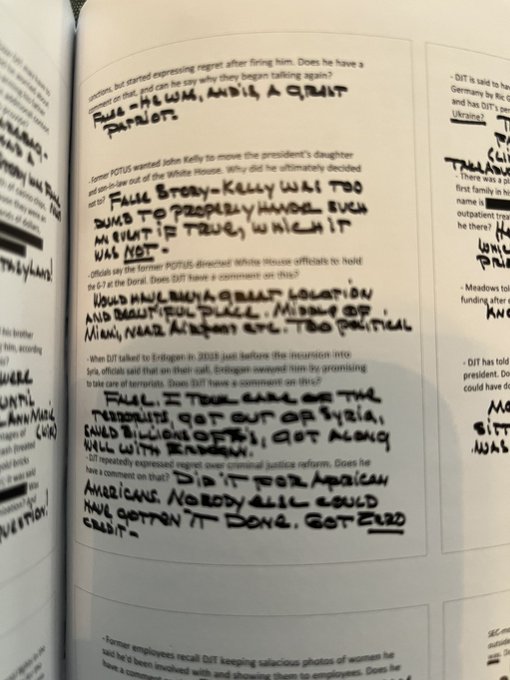 sanctions, but started expressing regret after firing him. Does he have a
comment on that, and can he say why they began talking again?
FALSE - HE WAS, AND IS, A GREAT
PATRIOT.
- Former POTUS wanted John Kelly to move the president's daughter
and son-in-law out of the White House. Why did he ultimately decided
not to? FALSE STORY - KELLY WAS TOO
DUMB TO PROPERLY HANDLE SUCH
AN EVENT IF TRUE, WHICH IT
WAS NOT.
- Officials say the former POTUS directed White House officials to hold
the G-7 at the Doral. Does DJT have a comment on this?
WOULD HAVE BEEN A GREAT LOCATION
AND BEAUTIFUL PLACE. MIDDLE OF
MIAMI, NEAR AIRPORT ETC. TOO POLITICAL
- When DJT talked to Erdogan in 2018 just before the incursion into
Syria, officials said that on their call, Erdogan swayed him by promising
to take care of terrorists. Does DJT have a comment on this?
FALSE. I TOOK CARE OF THE
TERRORISTS, GOT OUT OF SYRIA,
SAVED BILLIONS OF $'S, GOT ALONG
WELL WITH ERDOGAN.
- DJT repeatedly expressed regret over criminal justice reform. Does he
have a comment on that? DID IT FOR AFRICAN
AMERICANS. NOBODY ELSE COULD
HAVE GOTTEN IT DONE. GOT ZERO
CREDIT.
- Former employees recall DJT keeping salacious photos of women he
said he'd been involved with and showing them to employees. Does he
have a comment
- DJT is said to
Germany by Ric
and has DJT's
Ukraine?
- There was a
first family in his
name is
outpatient
he there?
- Meadows told
funding after
- DJT has told
president. Do
could have